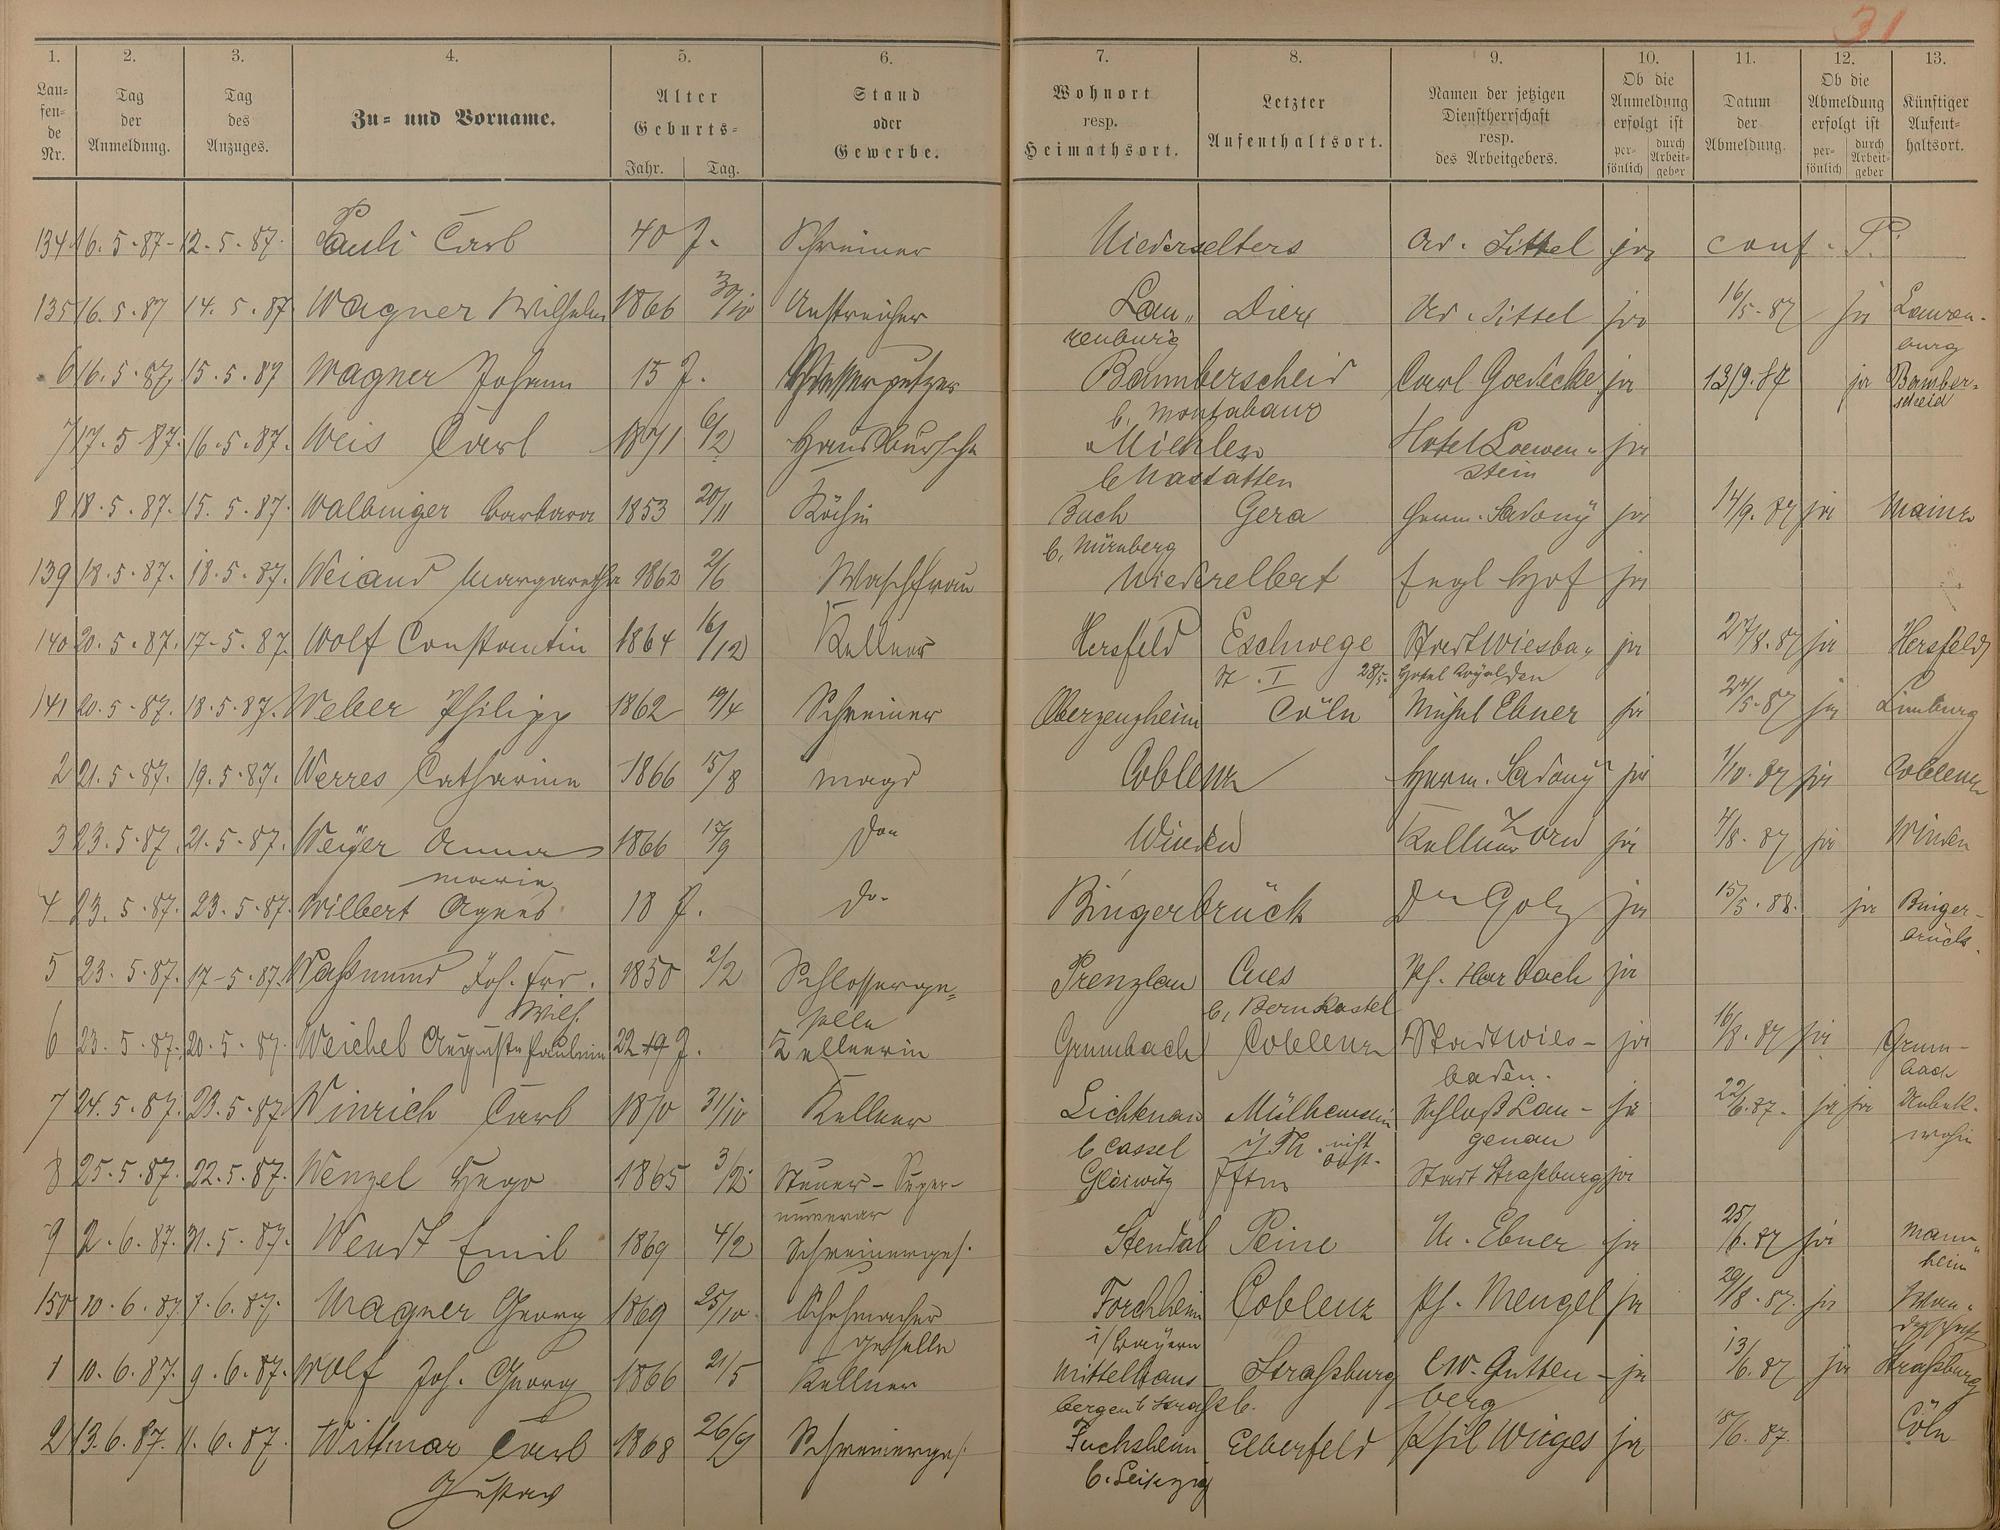 31
1. 2. 3. 4. 5. 6. 7. 8. 9. 10. 11. 12. 13.
Lau-fen-de Nr. Tag der Anmeldung. Tag des Anzuges. Zu- und Vorname. Alter Geburts- Jahr. Tag. Stand oder Gewerbe. Wohnort resp. Heimathsort. Letzter Aufenthaltsort. Namen der jetzigen Dienstherrschaft resp. des Arbeitgebers. Ob die Anmeldung erfolgt ist per-sönlich durch Arbeit-geber Datum der Abmeldung. Ob die Abmeldung erfolgt ist per-sönlich durch Arbeit-geber Künftiger Aufent-haltsort.
134 16.5.87- 12.5.87. Pauli Carl 40 J. Schreiner Niederselters Ad. Sittel ja conf. P.
135 16.5.87 14.5.87 Wagner Wilhelm 1866 30/10 Anstreicher Lau„ Diez Ad. Sittel ja 16/5-87 ja Lauren-
renburg burg
6 16.5.87. 15.5.87 Wagner Johann 15 J. Baumberscheid Carl Goedecke ja 13/9.87 ja Bamber-
b. Montabaur scheid
7 17.5 87. 16.5.87. Weis Carl 1871 6/2 Hausbursche Miehlen Hotel Loewen- ja
b Nastätten stein
8 18.5.87. 15.5.87. Walbinger Barbara 1853 20/11 Köchin Buch Gera Herm. Sadony ja 14/9.87 ja Mainz
b. Nürnberg
139 18.5.87. 18.5.87. Weiand Margaretha 1862 2/6 Waschfrau Niederelbert Engl Hof ja
140 20.5.87. 17-5.87. Wolf Constantin 1864 16/12 Kellner Hersfeld Eschwege Stadt Wiesba„ ja 27/8.87 ja Hersfeld
St. I 28/5. Hotel Royal den
141 20.5-87. 18.5.87. Weber Philipp 1862 19/4 Schreiner Oberzeuzheim Cöln Michel Ebner ja 24/5-87 ja Limburg
2 21.5-87. 19.5-87. Werres Catharina 1866 15/8 Magd Coblenz Herm. Sadony ja 1/10.87 ja Coblenz
3 23.5-87. 21.5-87. Weyer Anna 1866 17/9 do Winden Kellner Zorn ja 7/8.87 ja Winden
Marie
4 23.5.87. 23.5-87. Wilbert Agnes 18 J. do. Bingerbrück Dr Golz ja 15/5.88. ja Binger-
brück.
5 23.5.87. 17-5.87. Waßmund Joh. Frd. 1850 2/2 Schlosserge- Prenzlau Cues Ph. Harbach ja
Wilh. selle b, Bernkastel
6 23.5.87. 20.5.87 Weichel Auguste Pauline 22 19 J. Kellnerin Grumbach Coblenz Stadt Wies- ja 16/8.87 ja Grum-
baden. bach
7 24.5.87. 23.5.87 Winrich Carl 1870 31/10 Kellner Lichtenau Mülhausen Schloß Lan- ja 22/6.87. ja ja Unbek.
b Cassel i/Th. genau wohin
8 25.5.87. 22.5.87. Wenzel Hugo 1865 3/12 Steuer-Super- Gleiwitz Ems Stadt Straßburg ja
numerar
9 2.6.87. 31.5.87. Wendt Emil 1869 4/2 Schreinerges. Stendal Peine M. Ebner ja 25/6.87 ja Mann„
heim
150 10.6.87. 7.6.87. Wagner Georg 1869 25/10. Schuhmacher Forchheim Coblenz Ph. Mengel ja 29/8.87. ja
geselle i/Bayern
1 10.6.87. 9.6.87. Wolf Joh. Georg 1866 21/5 Kellner Mittelhaus- Straßburg C.W. Gutten- ja 13/6.87 ja Straßburg
bergen b Straßb. berg
2 13.6.87. 11.6.87. Wittmar Carl 1868 26/9 Schreinerges. Elberfeld Phil Winges ja 18/6.87. Cöln
Gustav b. Leipzig